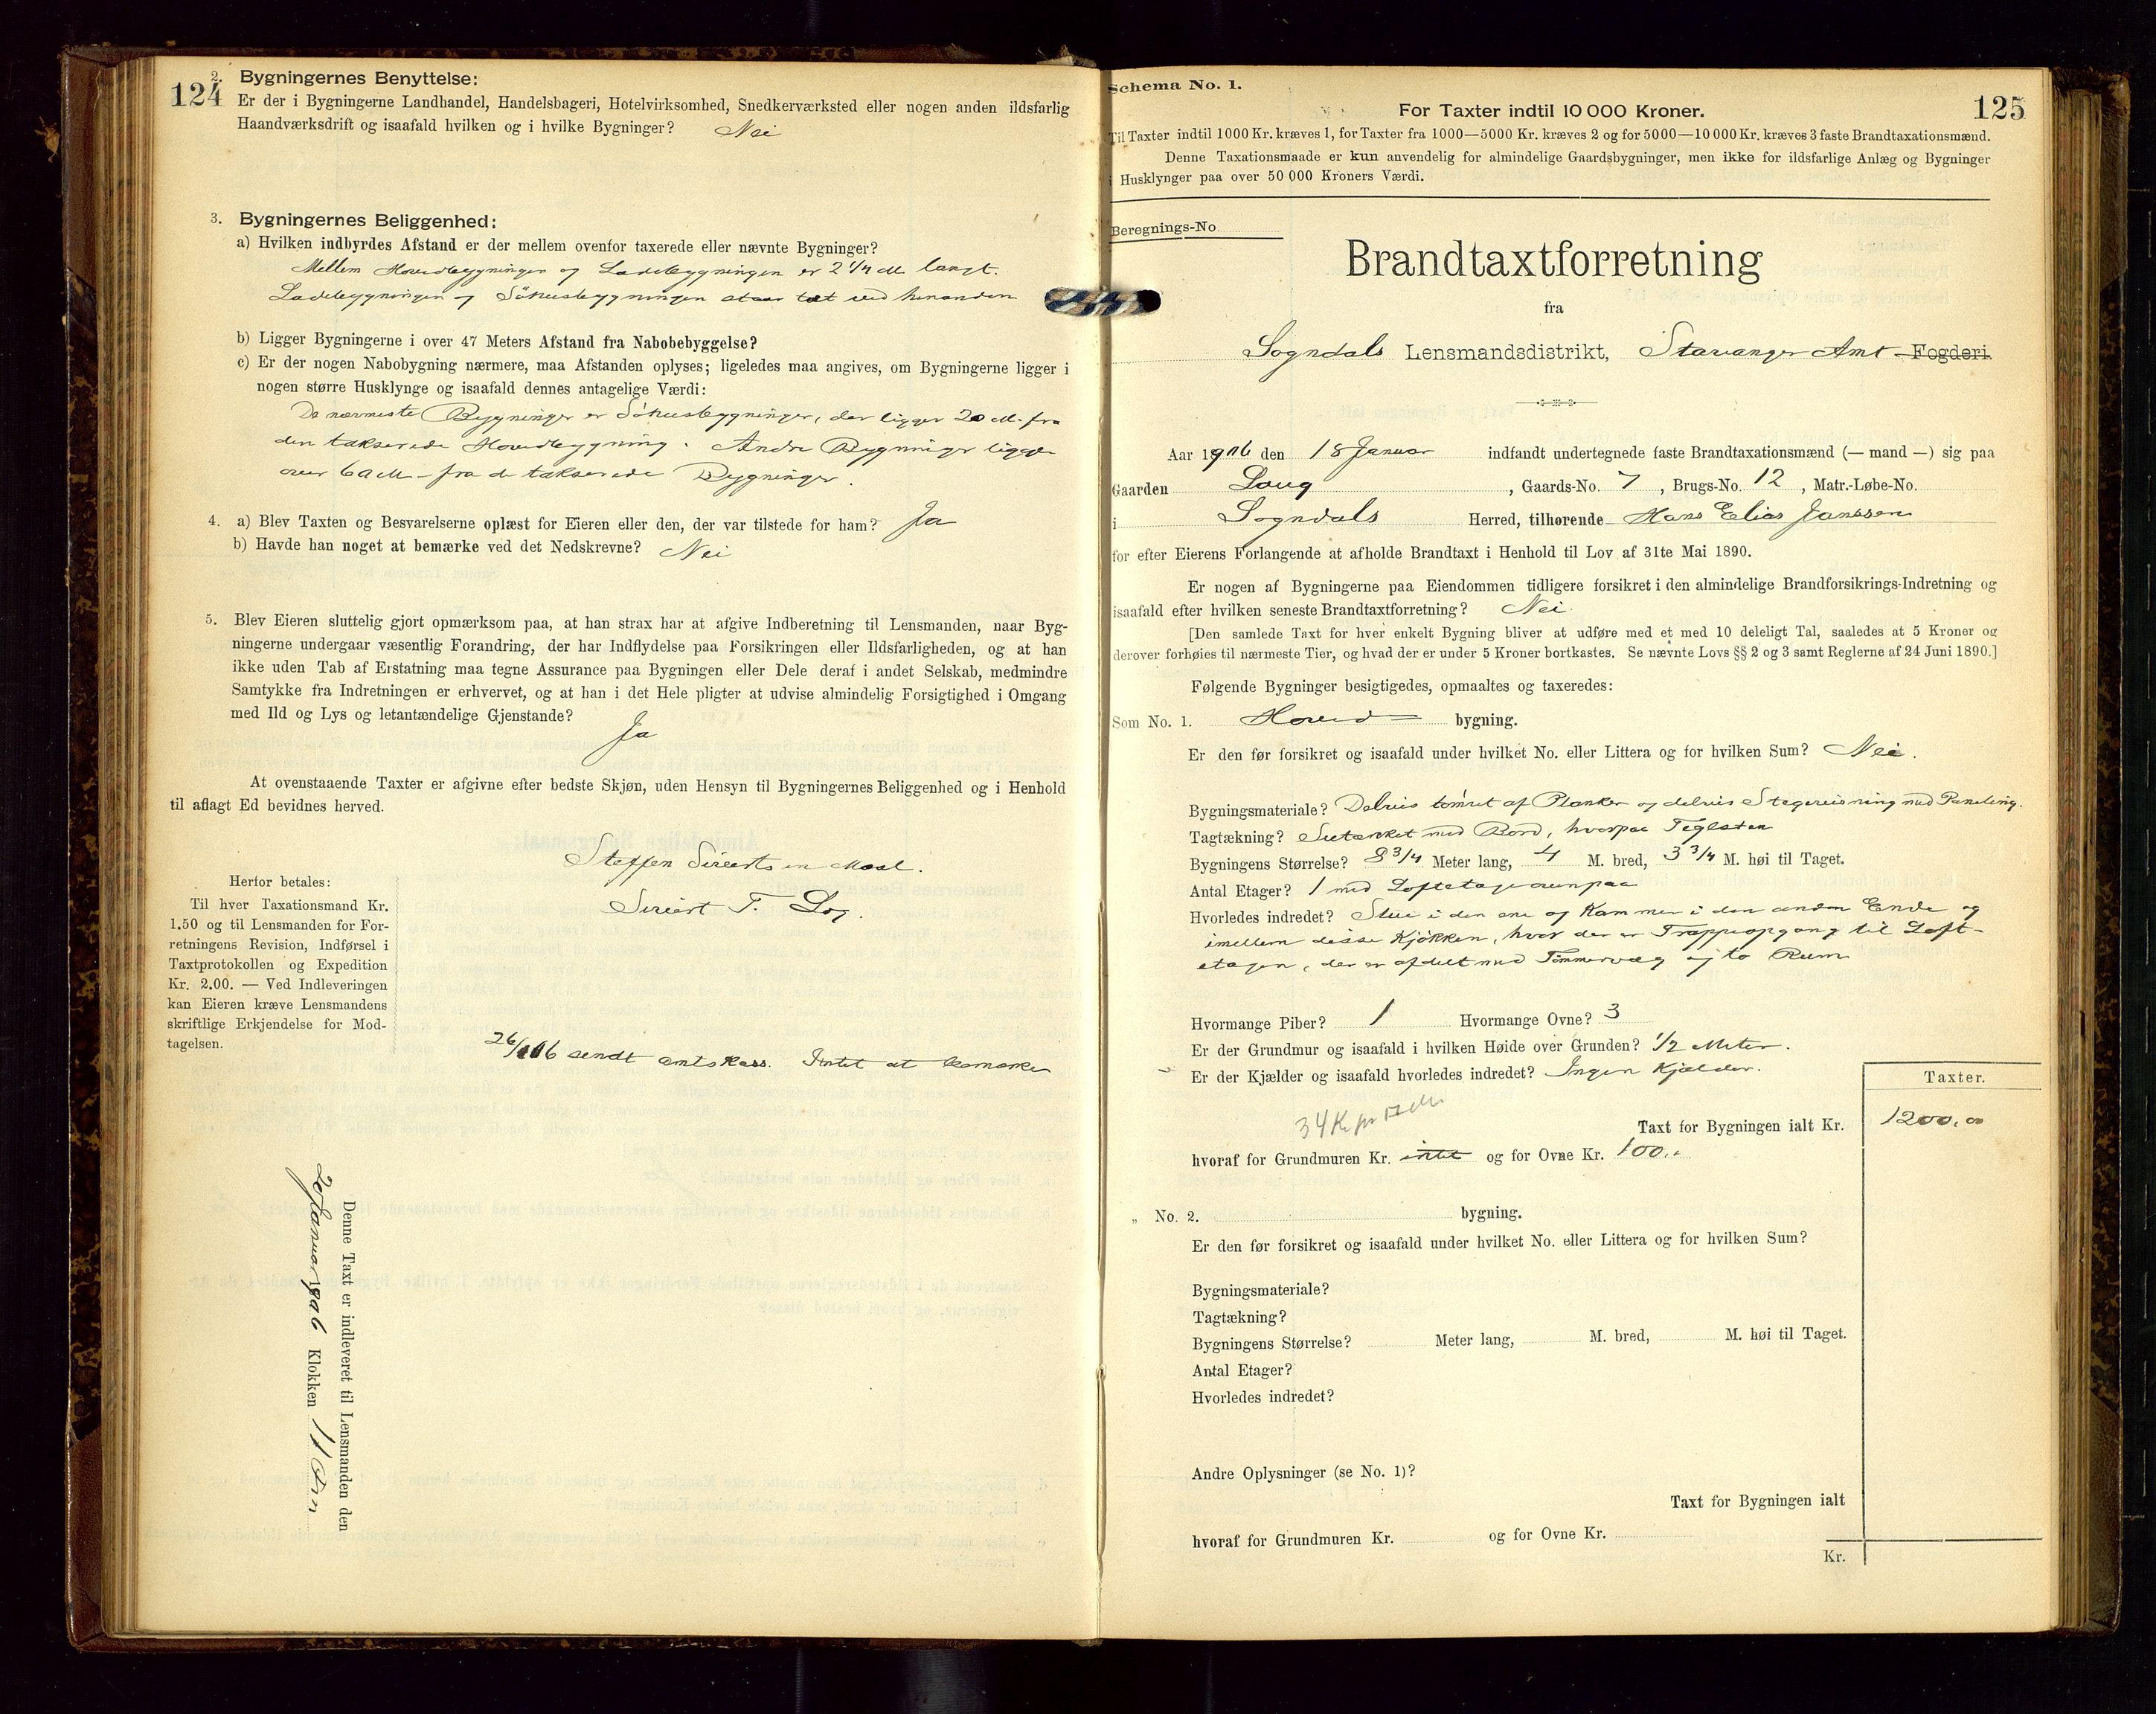 124
2. Bygningernes Benyttelse:
Er der i Bygningerne Landhandel, Handelsbageri, Hotelvirksomhed, Snedkerværksted eller nogen anden ildsfarlig
Haandværksdrift og isaafald hvilken og i hvilke Bygninger? Nei
3. Bygningernes Beliggenhed:
a) Hvilken indbyrdes Afstand er der mellem ovenfor taxerede eller nævnte Bygninger?
Mellem Hovedbygningen og Ladebygningen er 2 1/4 M. langt.
Ladebygningen og Söhusbygningen staar tæt ved hinanden
b) Ligger Bygningerne i over 47 Meters Afstand fra Nabobebyggelse?
c) Er der nogen Nabobygning nærmere, maa Afstanden oplyses; ligeledes maa angives, om Bygningerne ligger i
nogen større Husklynge og isaafald dennes antagelige Værdi:
De nærmeste Bygninger er Söhusbygninger, der ligger 20 M. fra
den takserede Hovedbygning. Andre Bygninger ligger
over 60 M. fra de takserede Bygninger.
4. a) Blev Taxten og Besvarelserne oplæst for Eieren eller den, der var tilstede for ham? Ja
b) Havde han noget at bemærke ved det Nedskrevne? Nei
5. Blev Eieren sluttelig gjort opmærksom paa, at han strax har at afgive Indberetning til Lensmanden, naar Byg-
ningerne undergaar væsentlig Forandring, der har Indflydelse paa Forsikringen eller Ildsfarligheden, og at han
ikke uden Tab af Erstatning maa tegne Assurance paa Bygningen eller Dele deraf i andet Selskab, medmindre
Samtykke fra Indretningen er erhvervet, og at han i det Hele pligter at udvise almindelig Forsigtighed i Omgang
med Ild og Lys og letantændelige Gjenstande?
Ja
At ovenstaaende Taxter er afgivne efter bedste Skjøn, uden Hensyn til Bygningernes Beliggenhed og i Henhold
til aflagt Ed bevidnes herved.
Steffen Sivertsen
Sivert T. Log.
Herfor betales:
Til hver Taxationsmand Kr.
1.50 og til Lensmanden for For-
retningens Revision, Indførsel i
Taxtprotokollen og Expedition
Kr. 2.00. — Ved Indleveringen
kan Eieren kræve Lensmandens
skriftlige Erkjendelse for Mod-
tagelsen.
sendt amtskass. Intet at bemærke
Denne Taxt er indleveret til Lensmanden den
20 Januar 1906 Klokken 11 Form
Schema No. 1.
125
For Taxter indtil 10 000 Kroner.
Til Taxter indtil 1000 Kr. kræves 1, for Taxter fra 1000—5000 Kr. kræves 2 og for 5000—10 000 Kr. kræves 3 faste Brandtaxationsmænd.
Denne Taxationsmaade er kun anvendelig for almindelige Gaardsbygninger, men ikke for ildsfarlige Anlæg og Bygninger
i Husklynger paa over 50 000 Kroners Værdi.
Beregnings-No.
Brandtaxtforretning
fra
Sogndals Lensmandsdistrikt, Stavanger Amt Fogderi.
Aar 1906 den 18 Januar indfandt undertegnede faste Brandtaxationsmænd (— mand —) sig paa
Gaarden Loug, Gaards-No. 7, Brugs-No. 12, Matr.-Løbe-No.
i Sogndals Herred, tilhørende Hans Elias Janssen
for efter Eierens Forlangende at afholde Brandtaxt i Henhold til Lov af 31te Mai 1890.
Er nogen af Bygningerne paa Eiendommen tidligere forsikret i den almindelige Brandforsikrings-Indretning og
isaafald efter hvilken seneste Brandtaxtforretning? Nei.
[Den samlede Taxt for hver enkelt Bygning bliver at udføre med et med 10 deleligt Tal, saaledes at 5 Kroner og
derover forhøies til nærmeste Tier, og hvad der er under 5 Kroner bortkastes. Se nævnte Lovs §§ 2 og 3 samt Reglerne af 24 Juni 1890.]
Følgende Bygninger besigtigedes, opmaaltes og taxeredes:
Som No. 1. Hoved= bygning.
Er den før forsikret og isaafald under hvilket No. eller Littera og for hvilken Sum? Nei.
Bygningsmateriale? Delvis tömret af Planker og delvis Stagereisning med Paneling.
Tagtækning? med Bord, hvorpaa Teglsten
Bygningens Størrelse? 8 3/4 Meter lang, 4 M. bred, 3 3/4 M. høi til Taget.
Antal Etager? 1 med Loftetage ovenpaa
Hvorledes indredet? Stue i den ene og Kammer i den anden Ende og
imellem disse Kjökken, hvor der er Trappeopgang til Loft-
etagen, der er afdelt med Tömmervæg i to Rum
Hvormange Piber? 1 Hvormange Ovne? 3
Er der Grundmur og isaafald i hvilken Høide over Grunden? 1/2 Meter.
Er der Kjælder og isaafald hvorledes indredet? Ingen Kjælder.
Taxter.
34 Kr. pr.
Taxt for Bygningen ialt Kr. 1200,00
hvoraf for Grundmuren Kr. intet og for Ovne Kr. 100,,
„ No. 2. bygning.
Er den før forsikret og isaafald under hvilket No. eller Littera og for hvilken Sum?
Bygningsmateriale?
Tagtækning?
Bygningens Størrelse? Meter lang, M. bred, M. høi til Taget.
Antal Etager?
Hvorledes indredet?
Andre Oplysninger (se No. 1)?
Taxt for Bygningen ialt
hvoraf for Grundmuren Kr. og for Ovne Kr.
Kr.